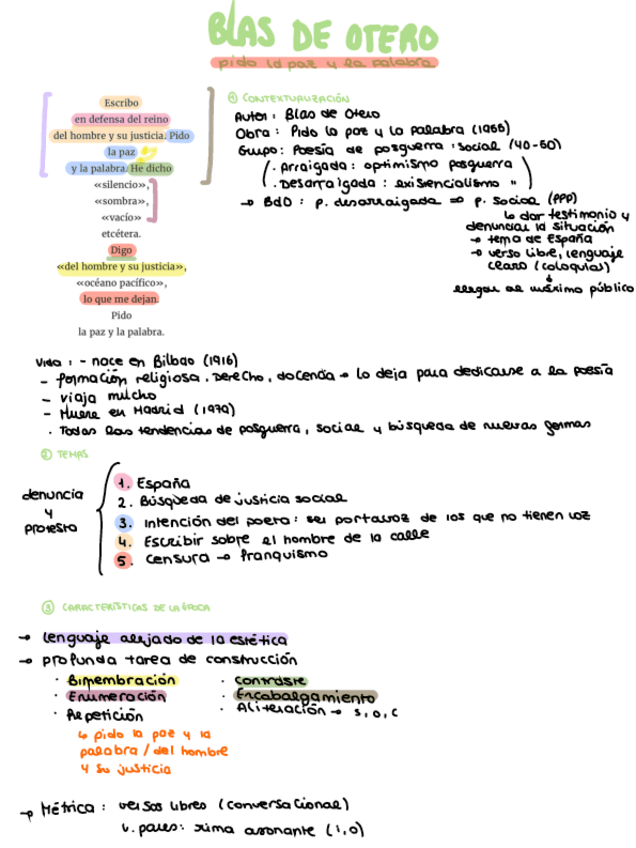 BLAS DE OTERO
pido la paz y la palabra
Escribo
en defensa del reino
del hombre y su justicia. Pido
la paz
y la palabra. He dicho
«silencio»,
«sombra»,
«vacío»
etcétera.
Digo
«del hombre y su justicia»,
«océano pacífico»,
lo que me dejan.
Pido
la paz y la palabra.
① CONTEXTUALIZACIÓN
Autor: Blas de Otero
Obra: Pido la paz y la palabra (1955)
Grupo: Poesía de posguerra: social (40-60)
· Arraigada: optimismo posguerra
· Desarraigada: existencialismo "
→ BdO: p. desarraigada ⇒ p. social (PPP)
↳ dar testimonio y
denunciar la situación
→ tema de España
→ verso libre, lenguaje
claro (coloquial)
↓
llegar al máximo público
Vida: - nace en Bilbao (1916)
- formación religiosa. Derecho, docencia → lo deja para dedicarse a la poesía
- viaja mucho
- Muere en Madrid (1979)
· Todas las tendencias de posguerra, social y búsqueda de nuevas formas
② TEMAS
denuncia
y
protesta
1. España
2. Búsqueda de justicia social
3. Intención del poeta: ser portavoz de los que no tienen voz
4. Escribir sobre el hombre de la calle
5. Censura → franquismo
③ CARACTERÍSTICAS DE LA ÉPOCA
→ lenguaje alejado de la estética
→ profunda tarea de construcción
· Bimembración
· Enumeración
· Repetición
↳ pido la paz y la
palabra / del hombre
y su justicia
· Contraste
· Encabalgamiento
· Aliteración → s, o, c
→ Métrica: versos libres (conversacional)
v. pares: rima asonante (i,o)